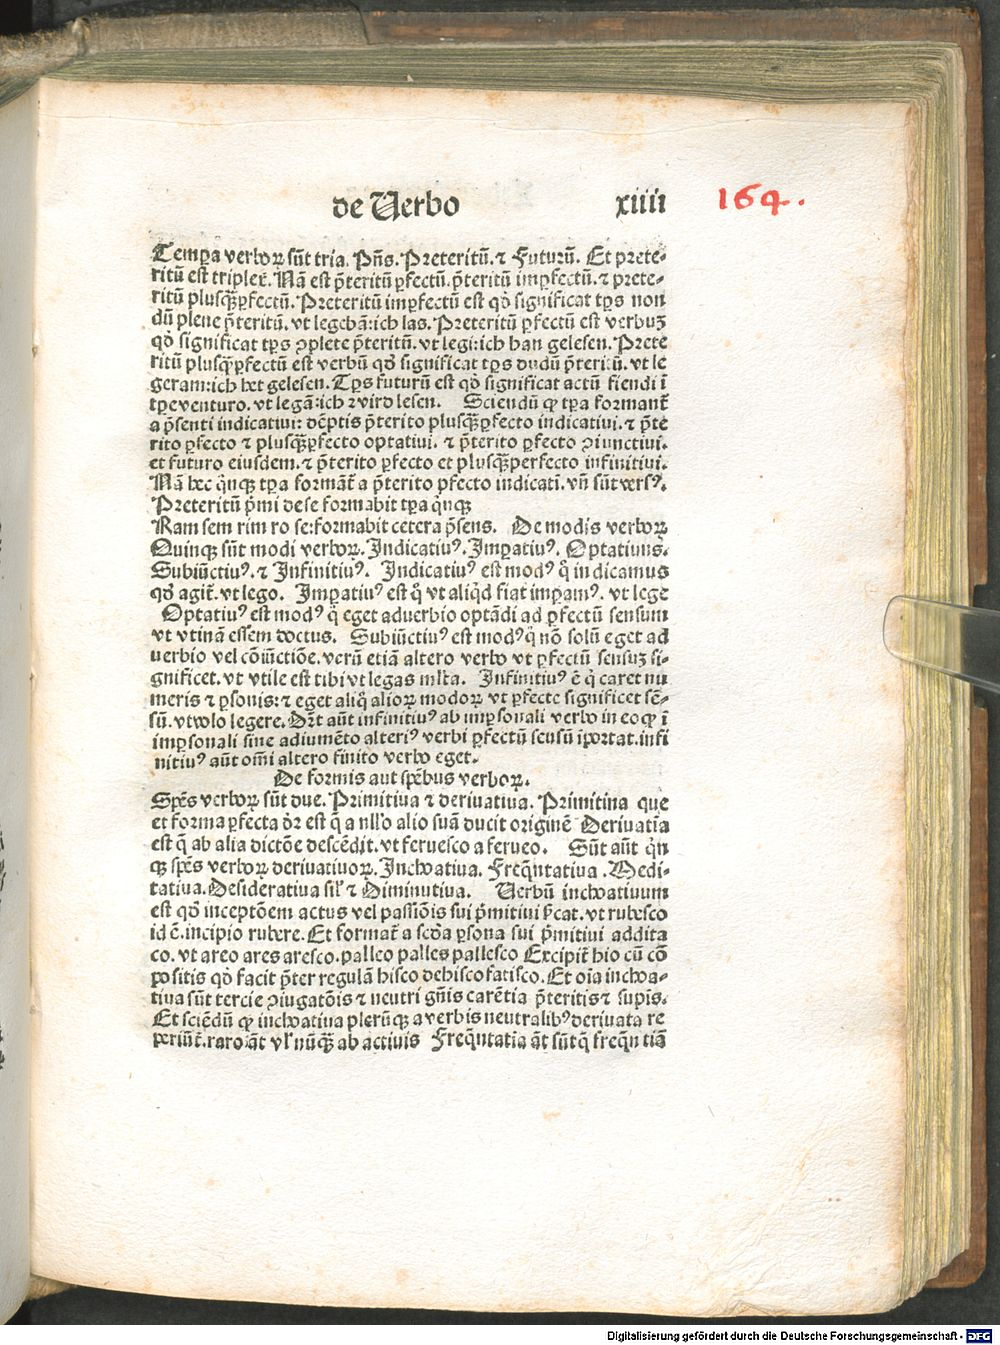 de Uerbo xiiii 164.
Tempa verboꝝ sūt tria. Pn̄s. Preteritū. ⁊ Futurū. Et prete-
ritū est triplex. Nā est p̄teritū ꝑfectū. p̄teritū imꝑfectū. ⁊ prete-
ritū plusqꝫꝑfectū. Preteritū imꝑfectū est qd̓ significat tp̄s non
dū plene p̄teritū. vt legebā: ich las. Preteritū ꝑfectū est verbuꝫ
qd̓ significat tp̄s ꝯplete p̄teritū. vt legi: ich han gelesen. Prete
ritū plusqꝫꝑfectū est verbū qd̓ significat tp̄s dudū p̄teritū. vt le
geram: ich het gelesen. Tp̄s futurū est qd̓ significat actū fiendi ī
tp̄e venturo. vt legā: ich wird lesen. Sciendū ꝙ tp̄a formant̄
a p̄senti indicatiui: dēptis p̄terito plusqꝫꝑfecto indicatiui. ⁊ p̄te
rito ꝑfecto ⁊ plusqꝫꝑfecto optatiui. ⁊ p̄terito ꝑfecto ꝯiunctiui.
et futuro eiusdem. ⁊ p̄terito ꝑfecto et plusqꝫperfecto infinitiui.
Nā hec quinqꝫ tp̄a formāt̄ a p̄terito pfecto indicati. vn̄ sūt versꝰ.
Preteritū p̄mi de se formabit tp̄a quinqꝫ
Ram sem rim ro se: formabit cetera p̄sens. De modis verboꝝ
Quinqꝫ sūt modi verboꝝ. Indicatiuꝰ. Imꝑatiuꝰ. Optatiuus.
Subiūctiuꝰ. ⁊ Infinitiuꝰ. Indicatiuꝰ est modꝰ q̇ indicamus
qd̓ agit̄. vt lego. Imꝑatiuꝰ est q̇ vt aliqd̓ fiat imꝑamꝰ. vt lege
Optatiuꝰ est modꝰ q̇ eget aduerbio optādi ad ꝑfectū sensum
vt vtinā essem doctus. Subiūctiuꝰ est modꝰ q̇ nō solū eget ad
uerbio vel cōiūctiōe. verū etiā altero verbo vt ꝑfectū sensuꝫ si-
gnificet. vt vtile est tibi vt legas ml̄ta. Infinitiuꝰ ē q̇ caret nu
meris ⁊ ꝑsonis: ⁊ eget aliq̇ alioꝝ modoꝝ vt ꝑfecte significet sē-
sū. vt volo legere. Dr̄t aūt infinitiuꝰ ab imꝑsonali verbo in eo ꝙ ī
imꝑsonali sine adiumēto alteriꝰ verbi ꝑfectū sensū īportat. infi
nitiuꝰ aūt om̄i altero finito verbo eget.
De formis aut spēbus verboꝝ.
Spēs verboꝝ sūt due. Primitiua ⁊ deriuatiua. Primitiua que
et forma ꝑfecta dr̄ est q̄ a nll̓o alio suā ducit originē Deriuatīa
est q̄ ab alia dictōe descēdit. vt feruesco a ferueo. Sūt aūt quin
qꝫ spēs verboꝝ deriuatiuoꝝ. Inchoatiua. Freqn̄tatiua. Medi-
tatiua. Desideratiua sil̓ ⁊ Diminutiua. Uerbū inchoatiuum
est qd̓ inceptōem actus vel passiōis sui p̄mitiui s̓cat. vt rubesco
id ē. incipio rubere. Et format̄ a scd̓a ꝑsona sui p̄mitiui addita
co. vt areo ares aresco. palleo palles pallesco Excipit̄ hio cū cō
positis qd̓ facit p̄ter regulā hisco dehisco fatisco. Et oīa inchoa-
tiua sūt tercie ꝯiugatōis ⁊ neutri gn̄is carētia p̄teritis ⁊ supīs.
Et sciēdū ꝙ inchoatiua plerūqꝫ a verbis neutralibꝰ deriuata re
periūt̄. raro āt vl̓ nūqꝫ ab actiuis Freqn̄tatia āt sūt q̄ freqn̄tiā
Digitalisierung gefördert durch die Deutsche Forschungsgemeinschaft - DFG